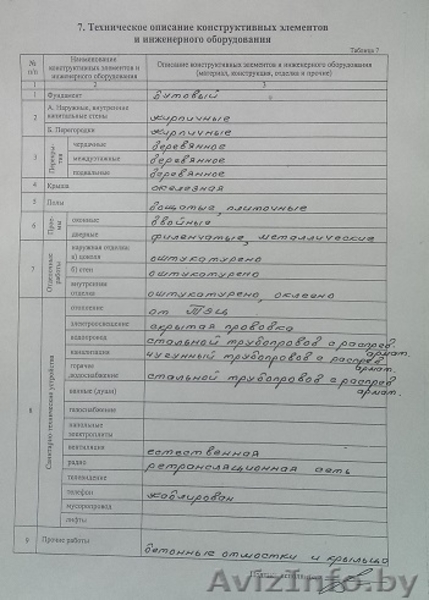 7. Техническое описание конструктивных элементов
и инженерного оборудования
Таблица 7
№ п/п
Наименование конструктивных элементов и инженерного оборудования
Описание конструктивных элементов и инженерного оборудования
(материал, конструкция, отделка и прочие)
1 2 3
1 Фундамент бутовый
2 А. Наружные, внутренние капитальные стены кирпичные
Б. Перегородки кирпичные
3 Перекрытия чердачные деревянное
междуэтажные деревянное
подвальные деревянное
4 Крыша железная
5 Полы дощатые, плиточные
6 Проемы оконные двойные
дверные филенчатые, металлические
7 Отделочные работы наружная отделка:
а) цоколя оштукатурено
б) стен оштукатурено
внутренняя отделка оштукатурено, оклеено
8 Санитарно-технические устройства отопление от ТЭЦ
электроосвещение скрытая проводка
водопровод стальной трубопровод с распред. армат.
канализация чугунный трубопровод с распред. армат.
горячее водоснабжение стальной трубопровод с распред. армат.
ванные (души)
газоснабжение
напольные электроплиты
вентиляция естественная
радио ретрансляционная сеть
телевидение
телефон каблирован
мусоропровод
лифты
9 Прочие работы бетонные отмостки и крыльцо
AvizInfo.by